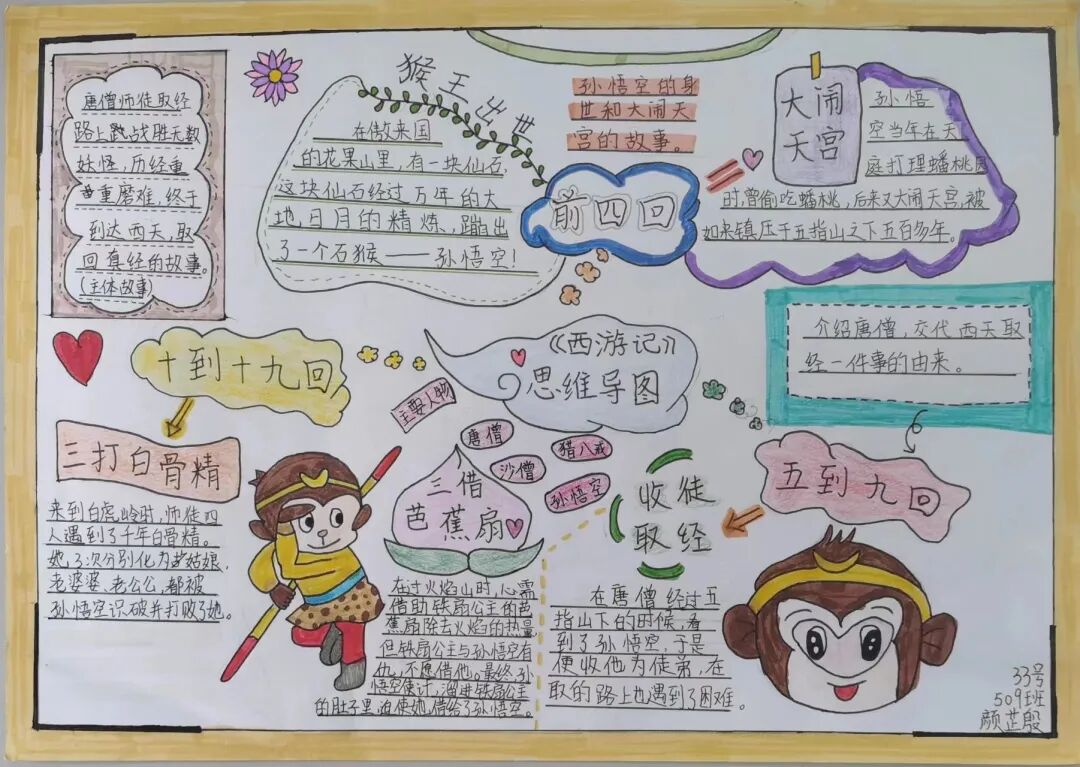 唐僧师徒取经
路上战胜无数
妖怪,历经重
重磨难,终于
到达西天,取
回真经的故事。
(主体故事)
猴王出世
在傲来国
的花果山里,有一块仙石,
这块仙石经过万年的大
地,日月的精炼,蹦出
了一个石猴——孙悟空!
孙悟空的身
世和大闹天
宫的故事。
前四回
大闹
天宫
孙悟
空当年在天
庭打理蟠桃园
时,曾偷吃蟠桃,后来又大闹天宫,被
如来镇压于五指山之下五百多年。
《西游记》
思维导图
介绍唐僧,交代西天取
经一件事的由来。
十到十九回
主要人物
唐僧
猎八戒
沙僧
孙悟空
三打白骨精
来到白虎岭时,师徒四
人遇到了千年白骨精。
她3次分别化为姑娘,
老婆婆,老公公,都被
孙悟空识破并打败了她。
三借
芭蕉扇
在过火焰山时,心需
借助铁扇公主的芭
蕉扇除去火焰的热量,
但铁扇公主与孙悟空有
仇,不愿借他。最终,孙
悟空使计,溜进铁扇公主
的肚子里迫使她,借给了孙悟空。
收徒
取经
五到九回
在唐僧经过五
指山下的时候,看
到了孙悟空,于是
便收他为徒弟,在
取的路上也遇到了困难。
33号
509班
颜芷殷